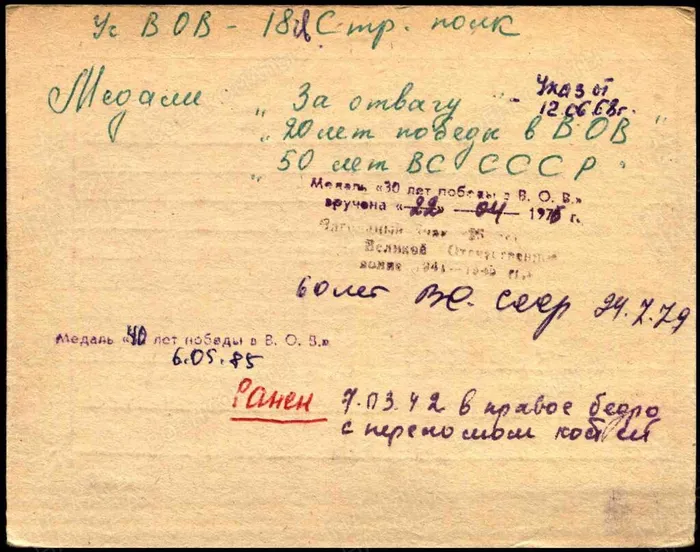 Ус ВОВ - 188 Стр. полк
Медали: "За отвагу" - Указ от
12.06.68г.
"20 лет победы в ВОВ"
"50 лет ВС СССР"
Медаль «30 лет победы в В. О. В.»
вручена «22» 04 1975 г.
Великой Отечественной
войны 1941—1945 гг.
60 лет ВС. СССР 24.7.79
Медаль «40 лет победы в В. О. В.»
6.05.85
Ранен 7.03.42 в правое бедро
с переломом костей